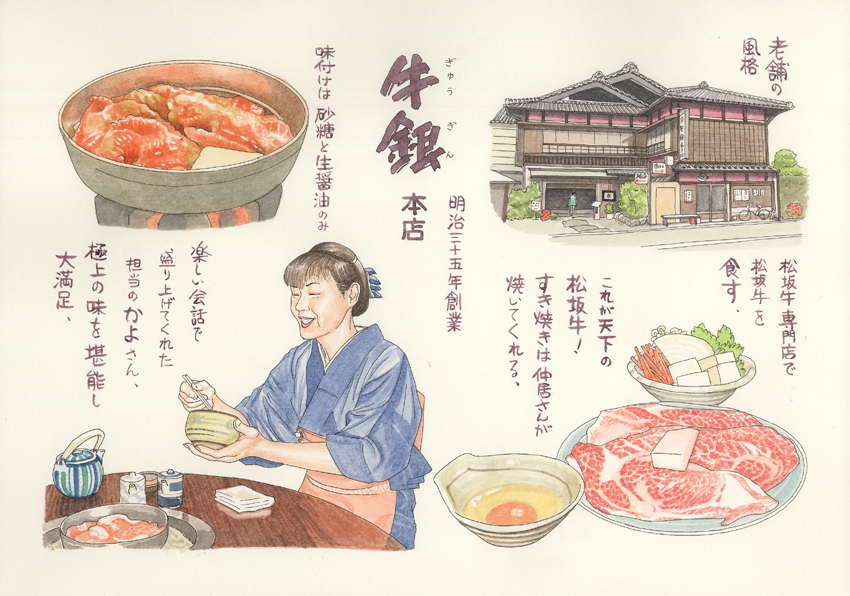 老舗の
風格
ぎゅう ぎん
牛銀
本店
明治三十五年創業
味付けは 砂糖と生醤油のみ
松坂牛専門店で
松坂牛を
食す、
これが天下の
松坂牛!
すき焼きは仲居さんが
焼いてくれる、
楽しい会話で
盛り上げてくれた
担当のかよさん、
極上の味を堪能し
大満足、